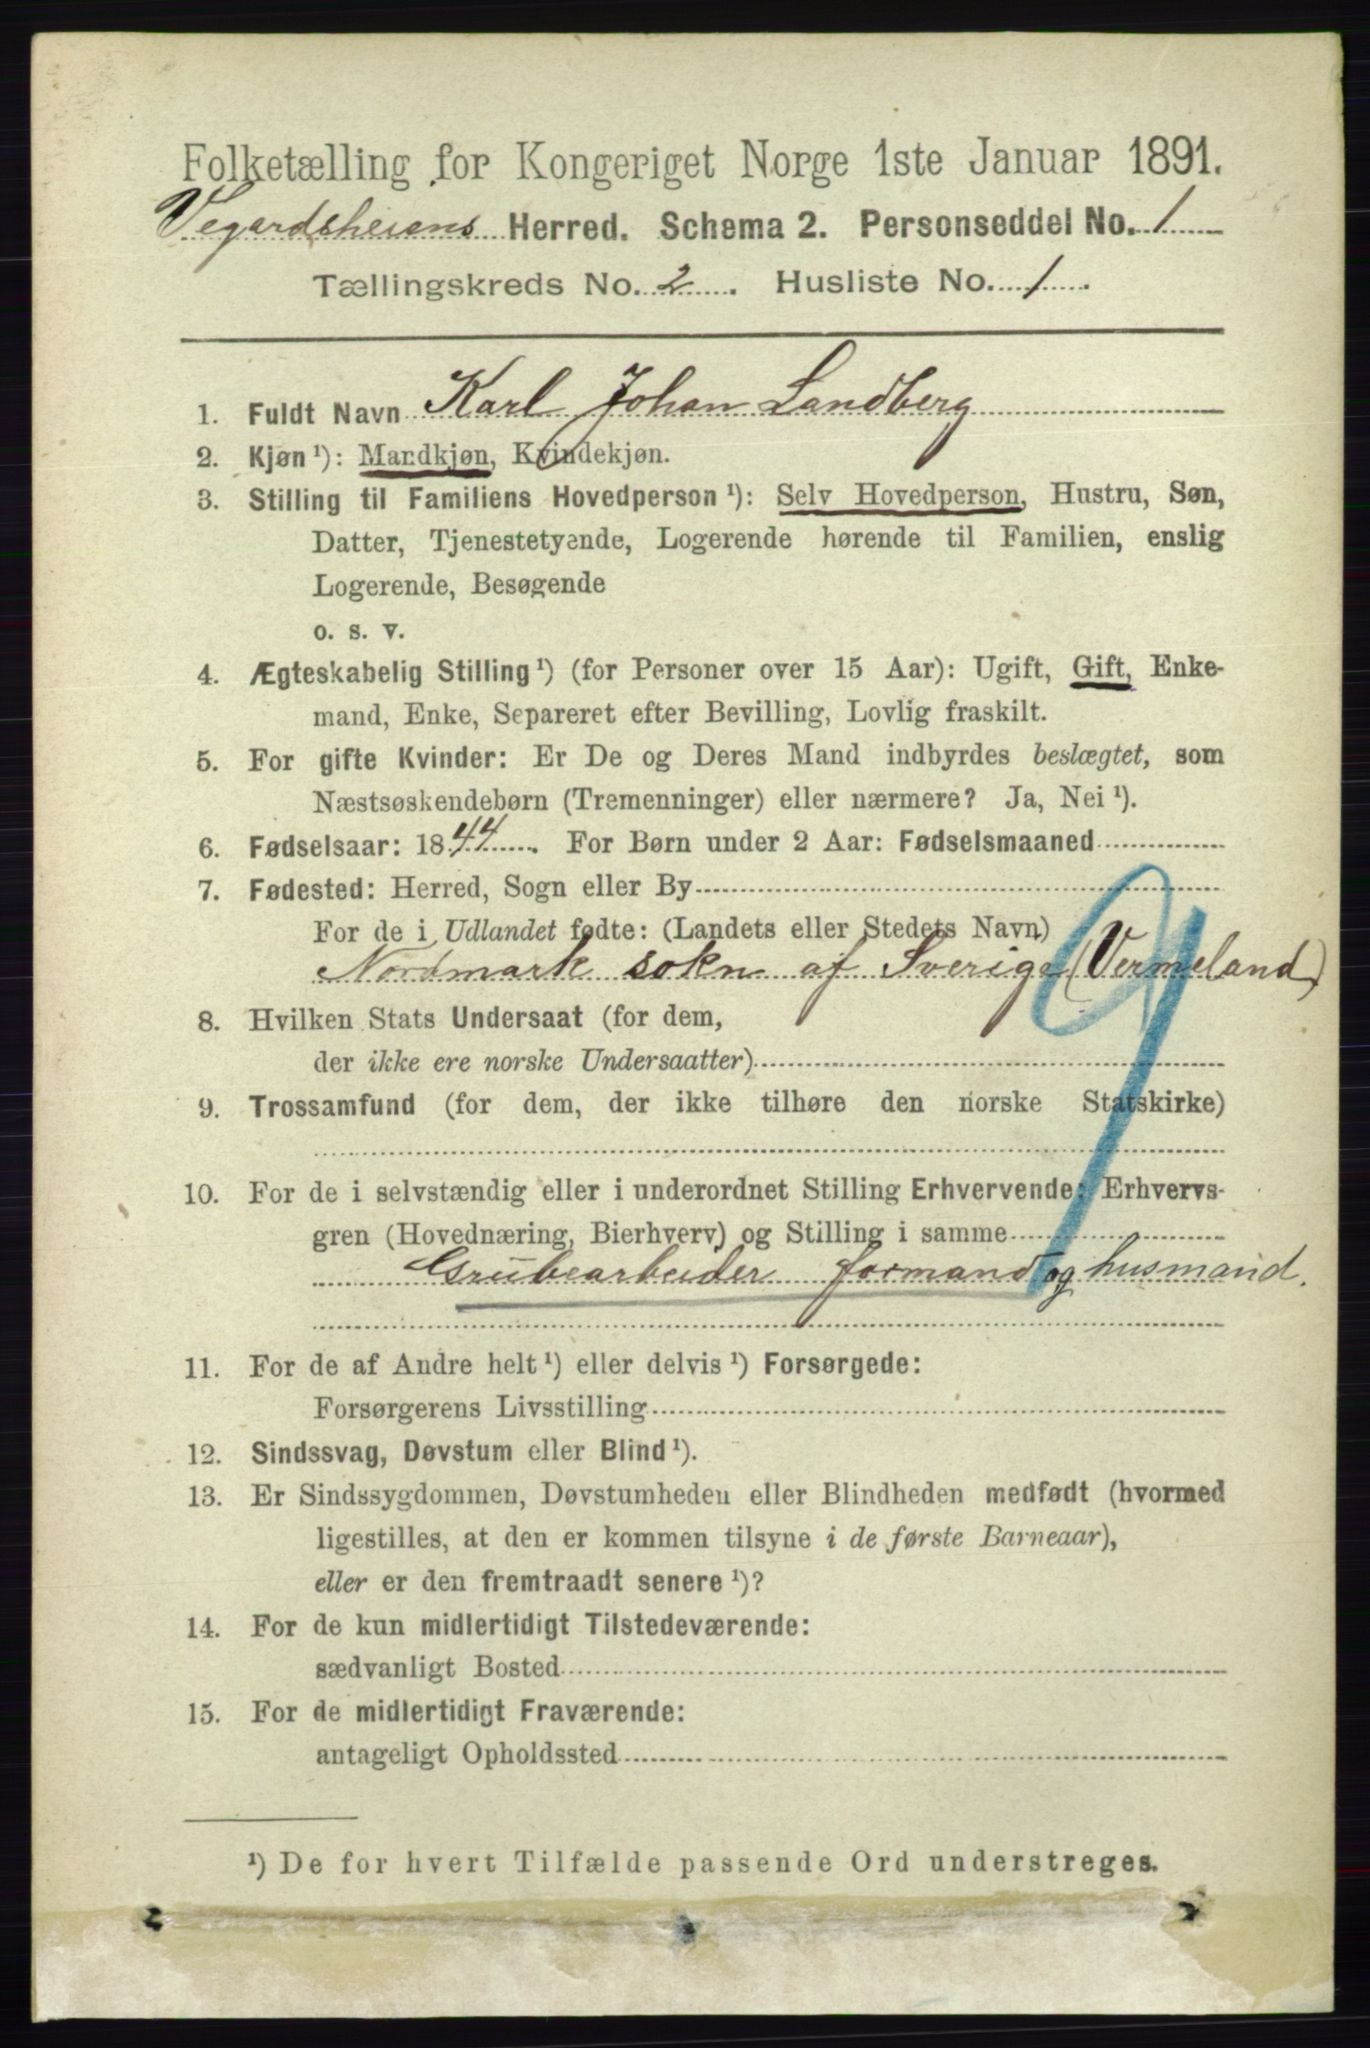 Folketælling for Kongeriget Norge 1ste Januar 1891.
Vegardsheiens Herred. Schema 2. Personseddel No. 1
Tællingskreds No. 2. Husliste No. 1.
1. Fuldt Navn Karl Johan Landberg
2. Kjøn ¹): Mandkjøn, Kvindekjøn.
3. Stilling til Familiens Hovedperson ¹): Selv Hovedperson, Hustru, Søn,
Datter, Tjenestetyende, Logerende hørende til Familien, enslig
Logerende, Besøgende
o. s. v.
4. Ægteskabelig Stilling ¹) (for Personer over 15 Aar): Ugift, Gift, Enke-
mand, Enke, Separeret efter Bevilling, Lovlig fraskilt.
5. For gifte Kvinder: Er De og Deres Mand indbyrdes beslægtet, som
Næstsøskendebørn (Tremenninger) eller nærmere? Ja, Nei ¹).
6. Fødselsaar: 1844. For Børn under 2 Aar: Fødselsmaaned
7. Fødested: Herred, Sogn eller By
For de i Udlandet fødte: (Landets eller Stedets Navn)
Nordmark sokn af Sverige (Vermeland)
8. Hvilken Stats Undersaat (for dem,
der ikke ere norske Undersaatter)
9. Trossamfund (for dem, der ikke tilhøre den norske Statskirke)
10. For de i selvstændig eller i underordnet Stilling Erhvervende: Erhvervs-
gren (Hovednæring, Bierhverv) og Stilling i samme
Grubearbeider formand og husmand.
11. For de af Andre helt ¹) eller delvis ¹) Forsørgede:
Forsørgerens Livsstilling
12. Sindssvag, Døvstum eller Blind ¹).
13. Er Sindssygdommen, Døvstumheden eller Blindheden medfødt (hvormed
ligestilles, at den er kommen tilsyne i de første Barneaar),
eller er den fremtraadt senere ¹)?
14. For de kun midlertidigt Tilstedeværende:
sædvanligt Bosted
15. For de midlertidigt Fraværende:
antageligt Opholdssted
¹) De for hvert Tilfælde passende Ord understreges.
9